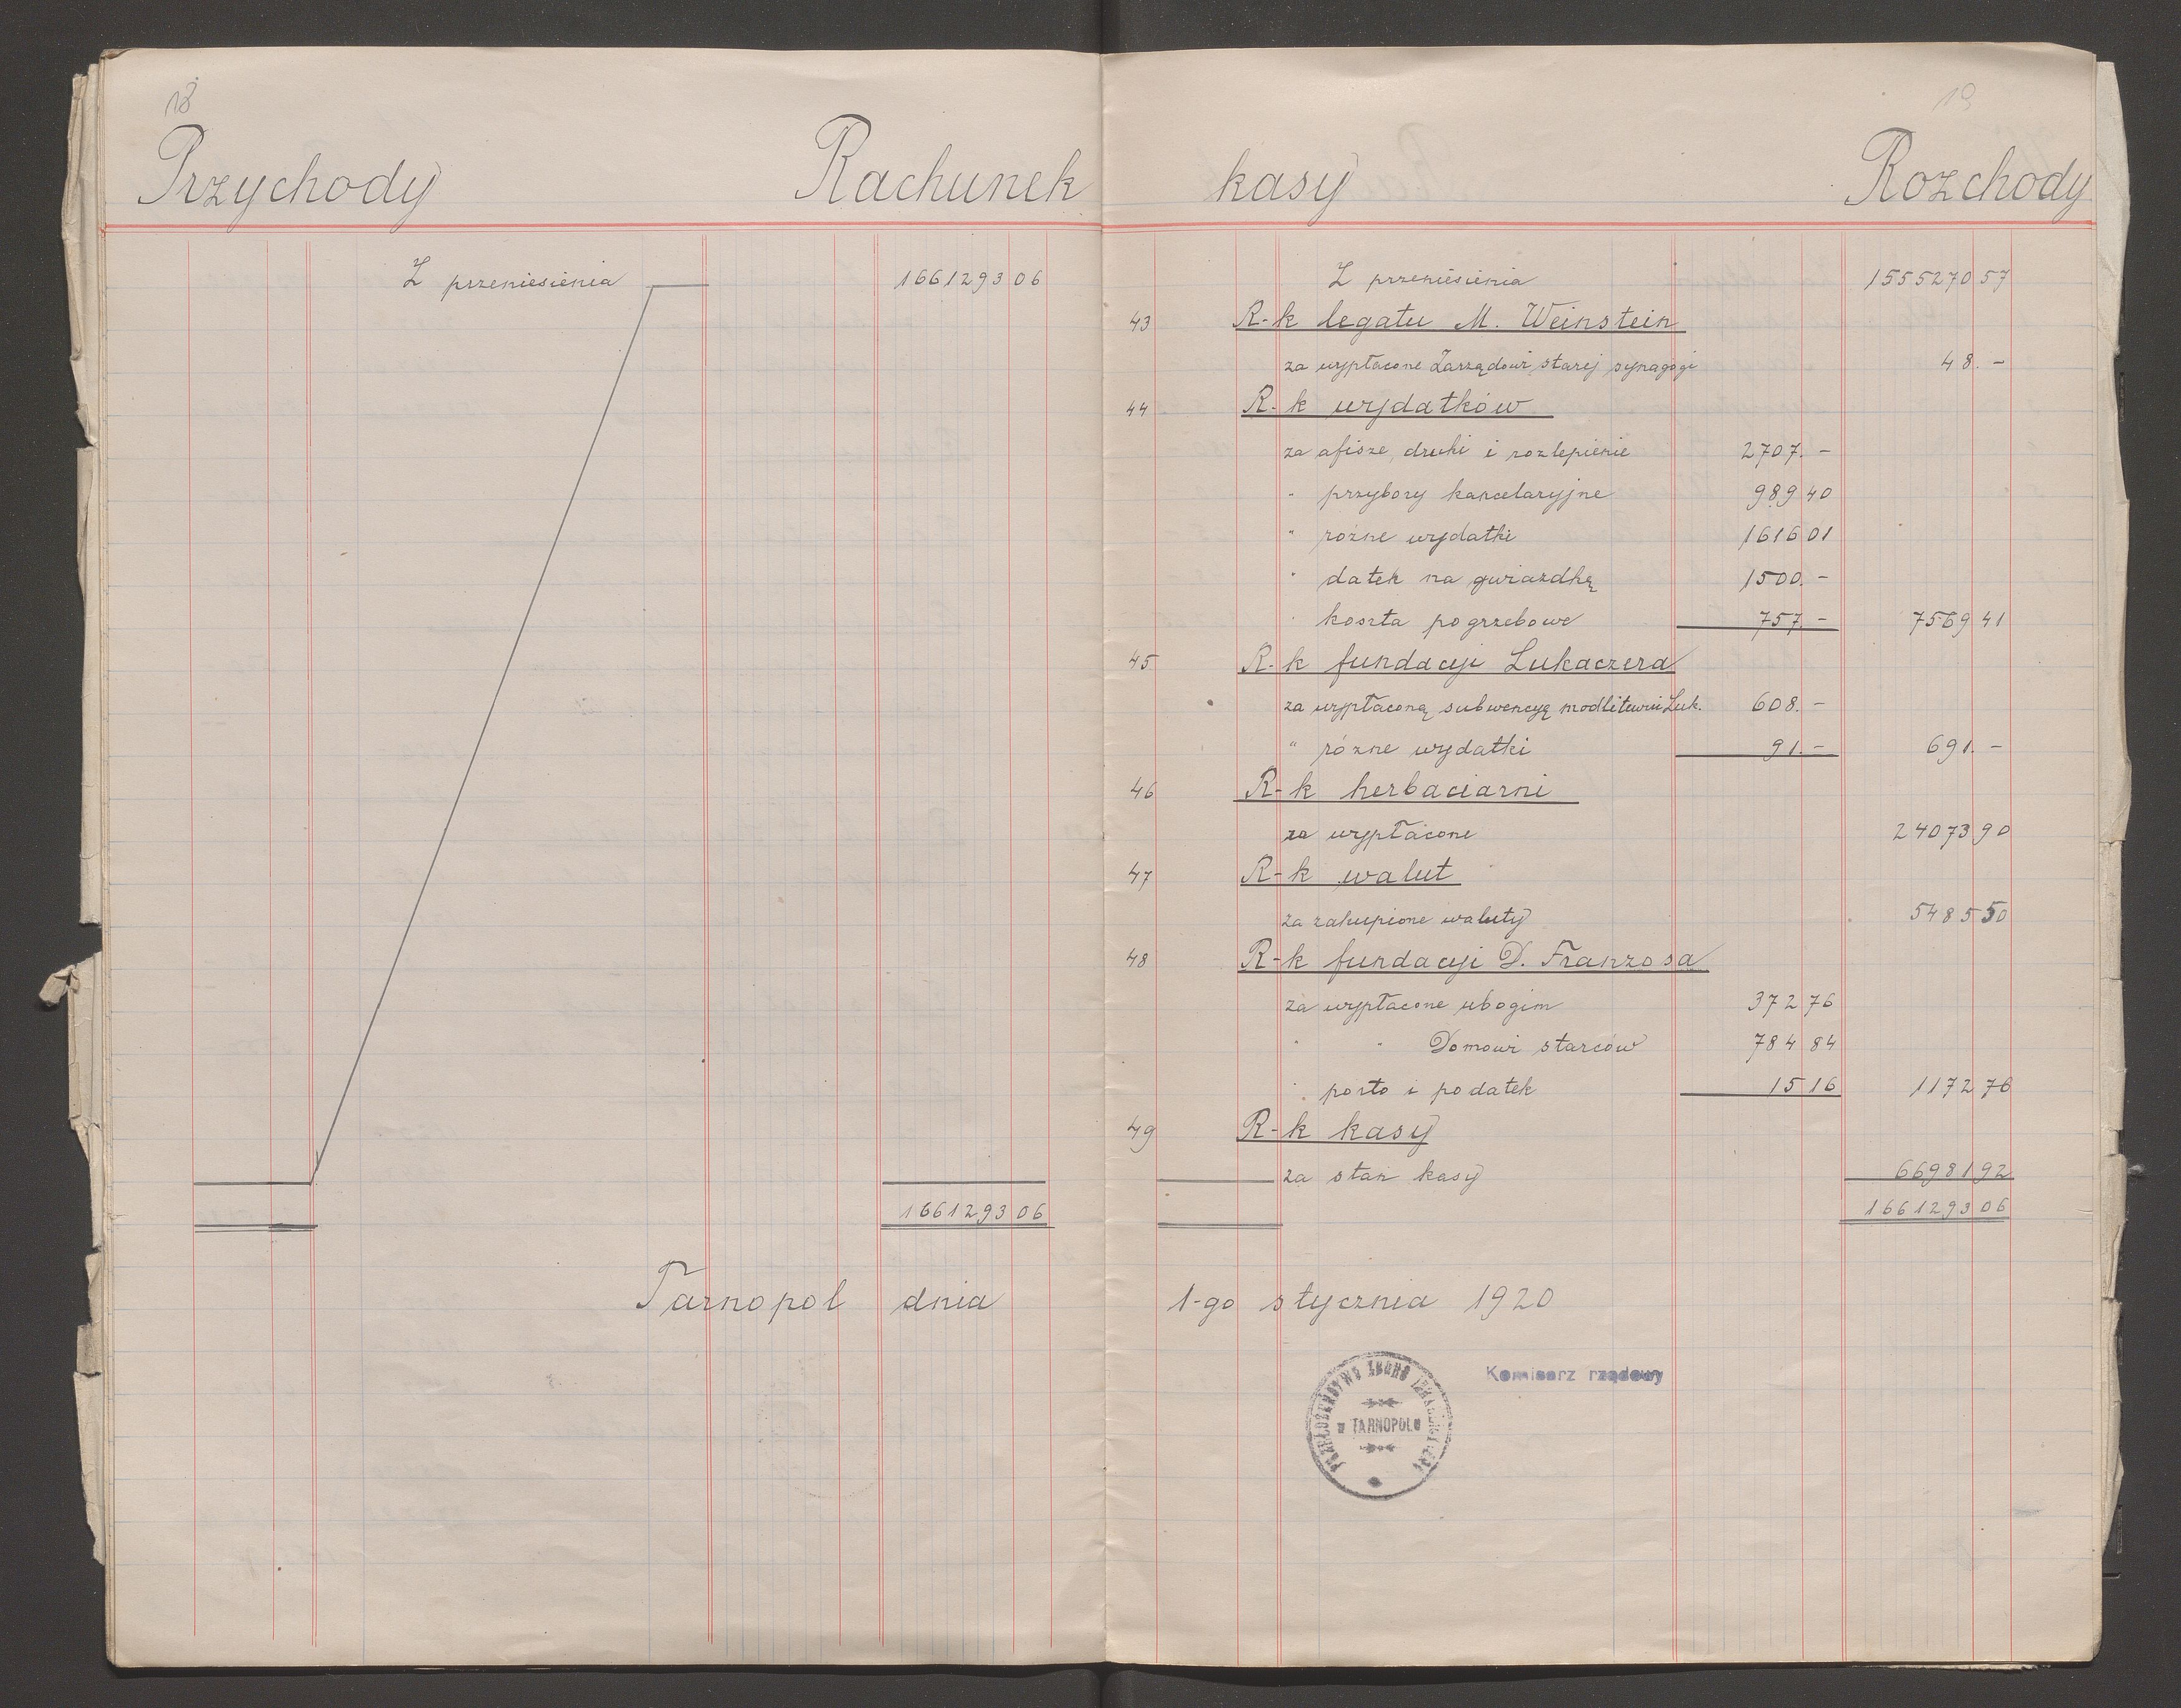 18
Przychody Rachunek
Z przeniesienia 1661293 06
1661293 06
Tarnopol dnia
19
kasy Rozchody
Z przeniesienia 1555270 57
43 R-k legatu M. Weinstein
za wypłacone Zarządowi starej synagogi 48. –
44 R-k wydatków
za afisze, druki i rozlepienie 2707. –
" przybory kancelaryjne 989 40
" rózne wydatki 1616 01
" datek na gwiazdkę 1500. –
" koszta pogrzebowe 757. – 7569 41
45 R-k fundacyi Lukaczera
za wypłaconą subwencyę modlitewni Luk. 608. –
" rózne wydatki 91. – 691. –
46 R-k herbaciarni
za wypłacone 24073 90
47 R-k walut
za zakupione waluty 5485 50
48 R-k fundacyi D. Franzosa
za wypłacone ubogim 372 76
" " Domowi starców 784 84
" porto i podatek 15 16 1172 76
49 R-k kasy
za stan kasy 66981 92
1661293 06
1-go stycznia 1920
Komisarz rządowy
PRZEŁOŻEŃSTWO ZBORU IZRAELICKIEGO
w TARNOPOLU